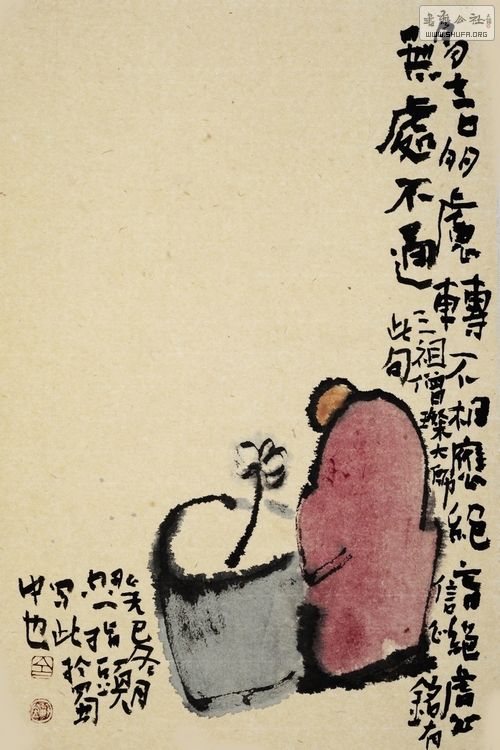 多言多慮轉不相應絕言絕慮
無處不通
三祖僧璨大師信心銘有
此句
癸巳冬月
一指頭
寫此於蜀
中也
書法公社
WWW.SHUFA.ORG